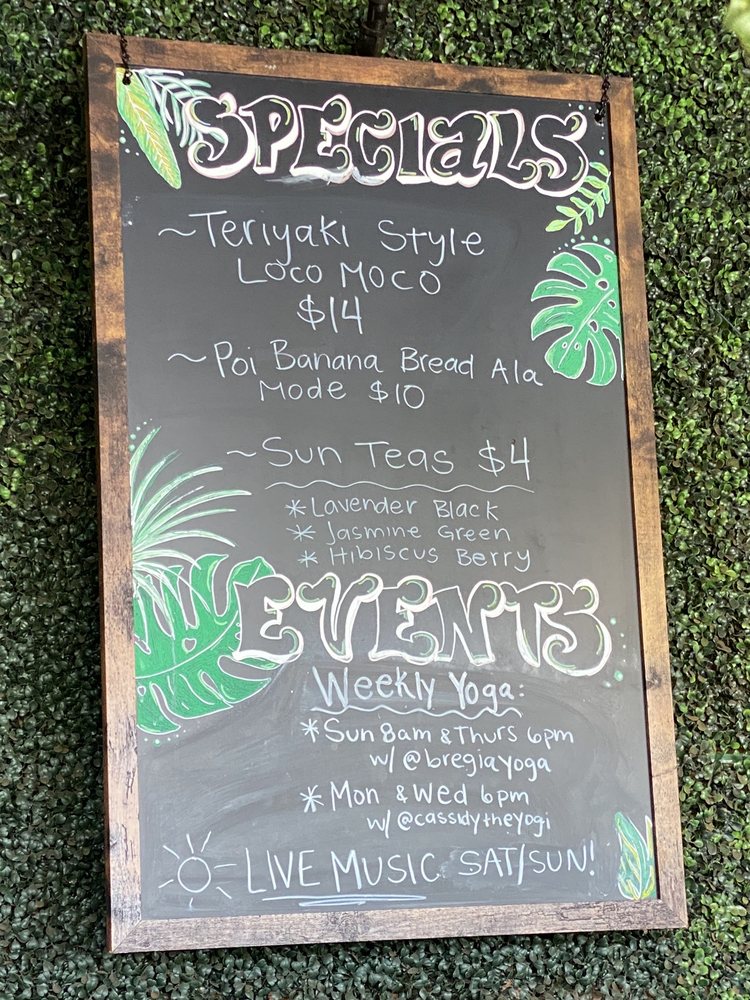 SPECIALS
~Teriyaki Style
LOCO MOCO
$14
~Poi Banana Bread Ala
Mode $10
~Sun Teas $4
*Lavender Black
*Jasmine Green
*Hibiscus Berry
EVENTS
Weekly Yoga:
*Sun 8am & Thurs 6pm
w/ @bregiayoga
*Mon & Wed 6pm
w/ @cassidytheyogi
LIVE MUSIC SAT/SUN!